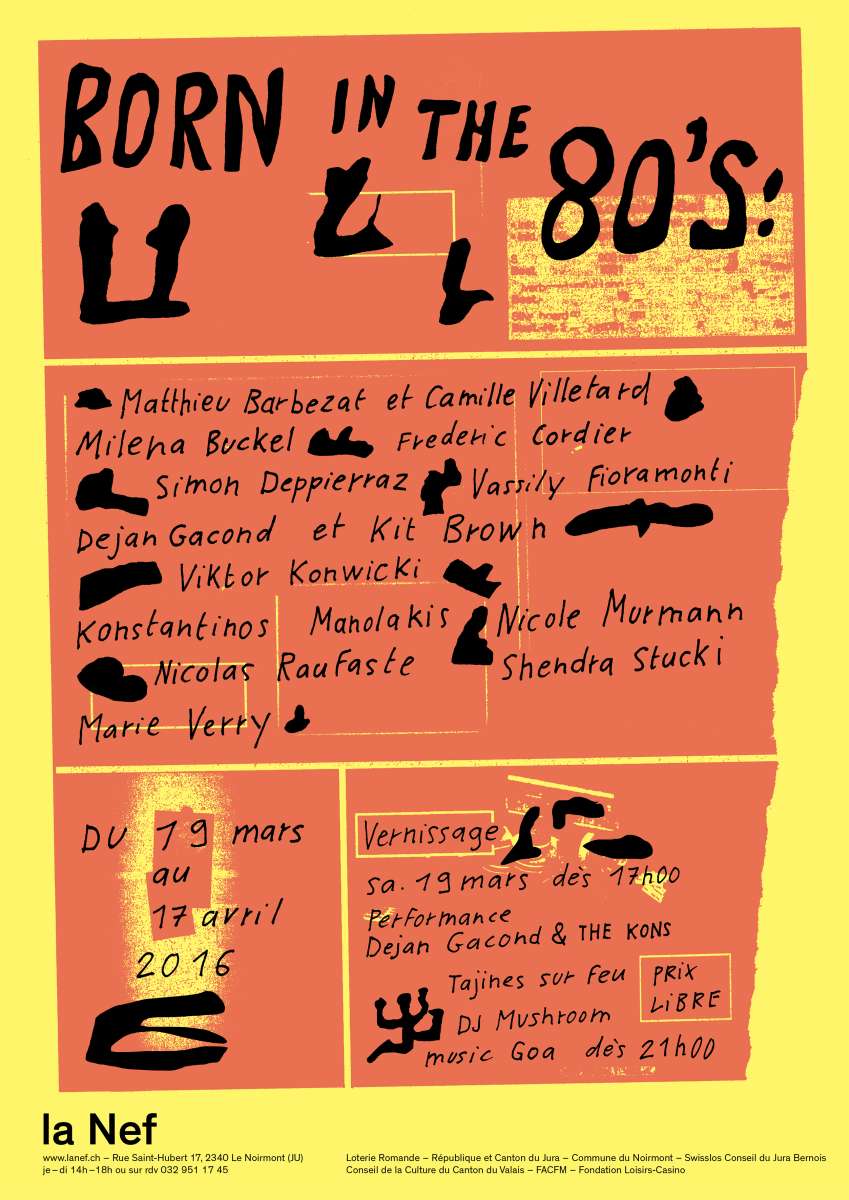 BORN IN THE 80'S:
Matthieu Barbezat et Camille Villetard
Milena Buckel Frederic Cordier
Simon Deppierraz Vassily Fioramonti
Dejan Gacond et Kit Brown
Viktor Konwicki
Konstantinos Manolakis Nicole Murmann
Nicolas Raufaste Shendra Stucki
Marie Verry
DU 19 mars
au
17 avril
2016
Vernissage
sa. 19 mars dès 17h00
Performance
Dejan Gacond & THE KONS
Tajines sur feu
DJ Mushroom
music Goa dès 21h00
PRIX
LIBRE
la Nef
www.lanef.ch – Rue Saint-Hubert 17, 2340 Le Noirmont (JU)
je – di 14h – 18h ou sur rdv 032 951 17 45
Loterie Romande – République et Canton du Jura – Commune du Noirmont – Swisslos Conseil du Jura Bernois
Conseil de la Culture du Canton du Valais – FACFM – Fondation Loisirs-Casino